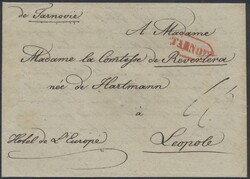 de Tarnovie
A Madame
TARNOW
Madame la Comtesse de Revertera
née de Hartmann
à
Hotel de L'Europe
Leopole